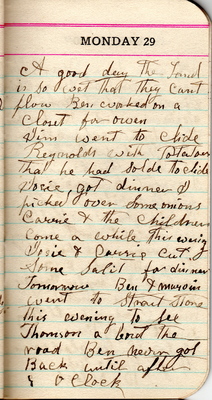 MONDAY 29
A good day the Land
is so wet that they cant
plow Ben worked on a
Closet for owen
Jim went to Clide
Reynolds with Potatoes
that he had solde to Clide
Josie got dinner I
picked over some onions
Carrie & the Children
come a while this evnig
Josie & Carrie Cut
some Salit for dinner
Tomorrow Ben &
went to Strait Stone
this evening to see
Thomson a bout the
road Ben never got
Back until after
O Clock